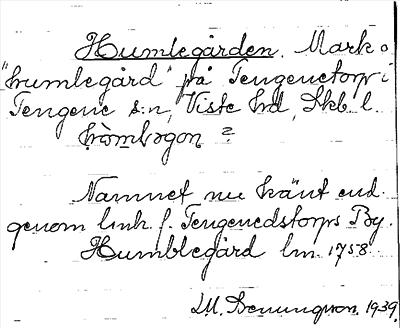 Humlegården. Mark o
"humlegård" på Tengenetorp i
Tengene s:n, Viste hd, Skb. l.
hòmlægon ?
Namnet nu känt end.
genom link f. Tengenedstorps By.
Humblegård lm. 1758.
1939.